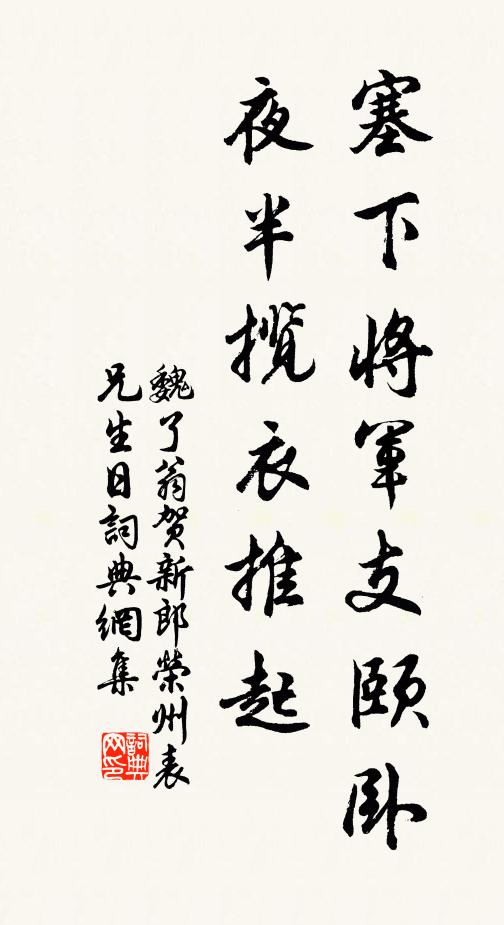 塞下將軍支頤臥
夜半攬衣推起
魏了翁賀新郎榮州表
兄生日詞典網集
詞典網印